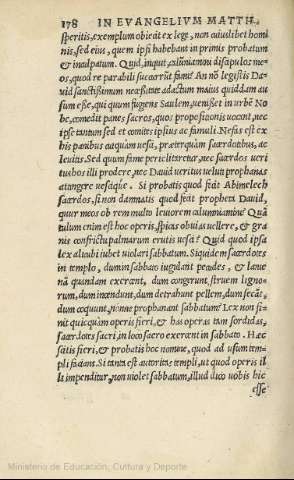 178 IN EVANGELIVM MATTH.
speritis, exemplum obiecit ex lege, non cuiuslibet homi
nis, sed eius, quem ipsi habebant in primis probatum
& inculpatum. Quid, inquit, calumniamini discipulos me-
os, quod re parabili succurrūt fami? An nō legistis Da-
uid sanctissimum necessitate adactum maius quiddam au
sum esse, qui quum fugens Saulem, uenisset in urbē No
be, comedit panes sacros, quos propositionis uocant, nec
ipse tantum sed et comites ipsius ac famuli. Nefas est ex
his panibus quēquam uesci, præterquàm sacerdotibus, ac
leuitis. Sed quum fame periclitaretur, nec sacerdos ueri
tus hos illi prodere, nec Dauid ueritus uelut prophanas
attingere uescāque. Si probatis quod fecit Abimelech
sacerdos, si non damnatis quod fecit propheta Dauid,
quur meos ob rem multo leuiorem calumniamini? Quā
tulum enim est hoc operis, spicas obuias uellere, & gra
nis confrictu palmarum erutis uesci? Quid quod ipsa
lex alicubi iubet uiolari sabbatum. Siquidem sacerdotes
in templo, dum in sabbato iugulant pecudes, & lanie
nā quandam exercent, dum congerunt struem ligno-
rum, dum incendunt, dum detrahunt pellem, dum secāt,
dum coquunt, nonne prophanant sabbatum? Lex non si-
nit quicquàm operis fieri, & has operas tam sordidas,
sacerdotes sacri, in loco sacro exercent in sabbato. Hæc
scitis fieri, & probatis hoc nomine, quod ad usum tem-
pli faciant. Si tanta est autoritas templi, ut quod operis il
li impenditur, non uiolet sabbatum, illud dico uobis hic
esse
Ministerio de Educación, Cultura y Deporte